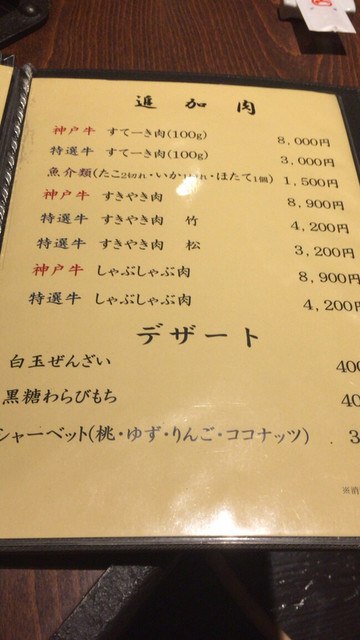 追加肉
神戸牛 すてーき肉(100g) 8,000円
特選牛 すてーき肉(100g) 3,000円
魚介類(たこ2切れ・いか1切れ・ほたて1個) 1,500円
神戸牛 すきやき肉 8,900円
特選牛 すきやき肉 竹 4,200円
特選牛 すきやき肉 松 3,200円
神戸牛 しゃぶしゃぶ肉 8,900円
特選牛 しゃぶしゃぶ肉 4,200
デザート
白玉ぜんざい 400
黒糖わらびもち 40
シャーベット(桃・ゆず・りんご・ココナッツ) 3
※消